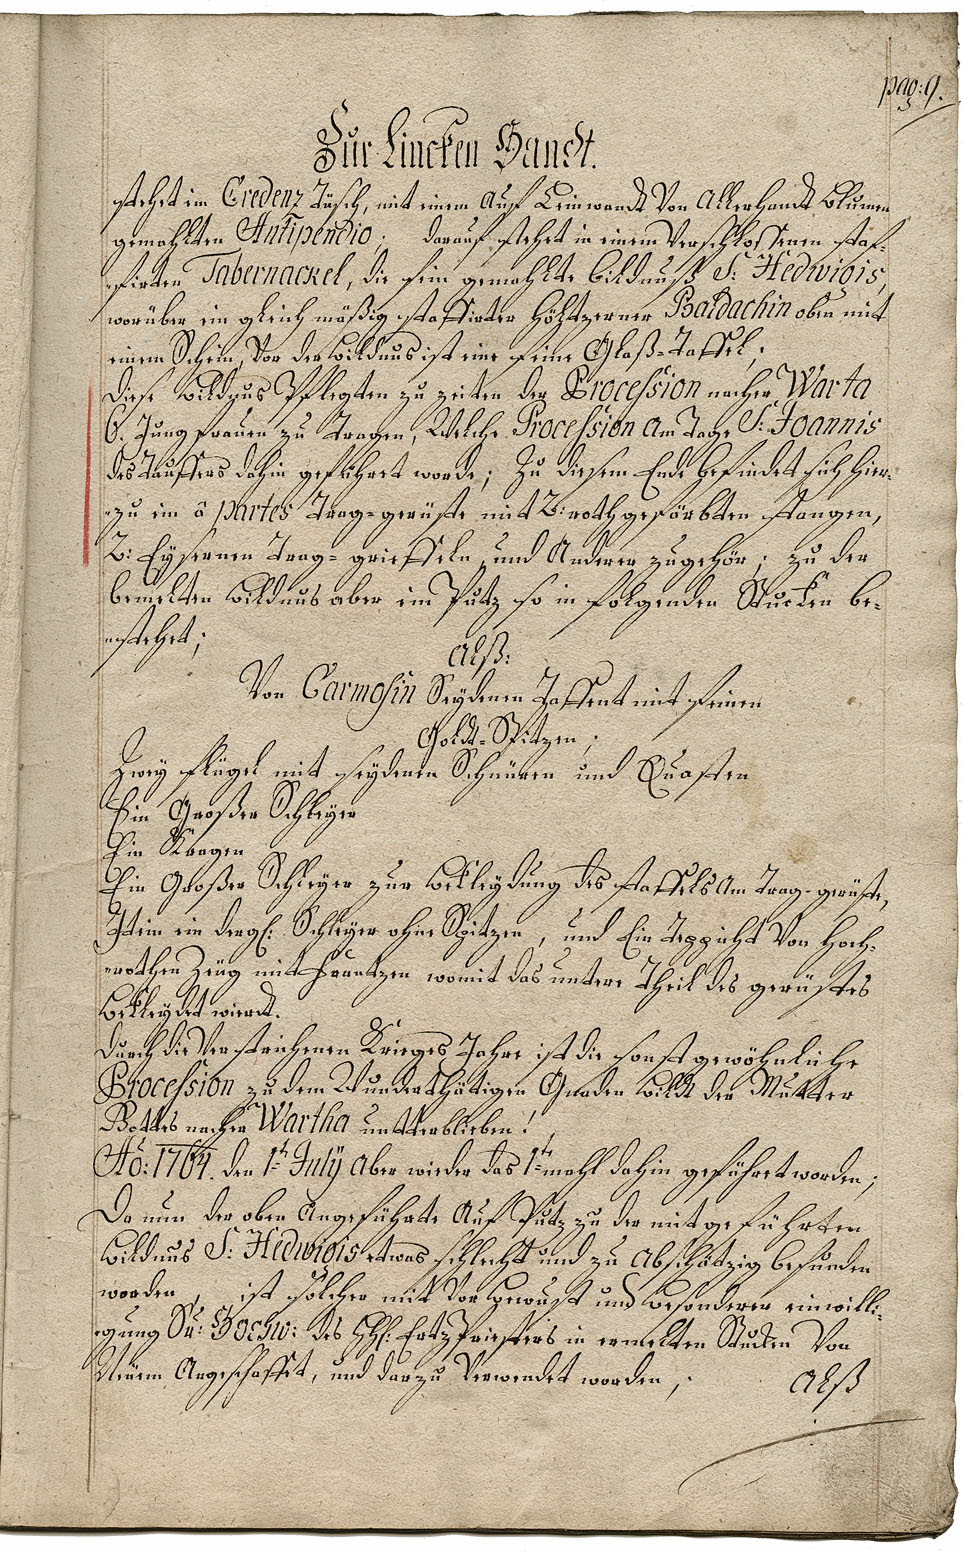 pag: 9.
Zur Lincken Handt.
stehet im Credenz Tisch, mit einem Auf Leinwandt Von Allerhandt Blumen
gemahlten Antipendio; darauf stehet in einem Verschlossenen staf-
-firten Tabernackel, die fein gemahlte bildnuß S: Hedwigis,
worüber ein gleich mäßig staffirter höltzerner Baldachin oben mit
einem Schein, Vor der bildnus ist eine feine Glaß-Taffel;
Diese bildnus Pflegten zu zeiten der Procession nacher Warta
6. Jungfrauen zu tragen, Welche Procession Am Tage S: Joannis
des Tauffers dahin geführet worde; Zu diesem Ende befindet sich hier-
-zu ein â partes Trag-gerüste mit 2: roth gefärbten stangen,
2: Eysernen Trag- und Anderer zugehör; zu der
bemelten bildnus aber ein Putz so in folgenden Stucken be-
-stehet;
Alß:
Von Carmosin Seydenen Taffent mit feinen
Goldt-Spitzen;
Zwey flügel mit seydenen Schnüren und Quasten
Ein Großer Schleyer
Ein Kragen
Ein Großer Schleyer zur bekleydung des staffels Am Trag-gerüste,
Item ein dergl: Schleyer ohne Spitzen, und Ein Teppicht Von Hoch-
-rothen Zeug mit Frantzen womit das untere Theil des gerüstes
bekleydet wierdt.
Durch die Verstrichenen Krieges Jahre ist die sonst gewöhnliche
Procession zu dem Wunderthätigen Gnaden bildt der Mutter
Gottes nacher Wartha untterblieben!
Aõ: 1764. den 1t July Aber wieder das 1te mahl dahin geführet worden;
Da nun der oben Angeführte Auf Putz zu der mit geführten
bildnus S: Hedwigis etwas schlecht und zu Abschätzig befunden
worden, ist solcher mit Vor bewust und besonderer einwilli-
-gung Sr: Hochw: des H: Ertz Priesters in ermelten Stucken Von
Neuem Angeschaffet, und darzu Verwendet worden; Alß